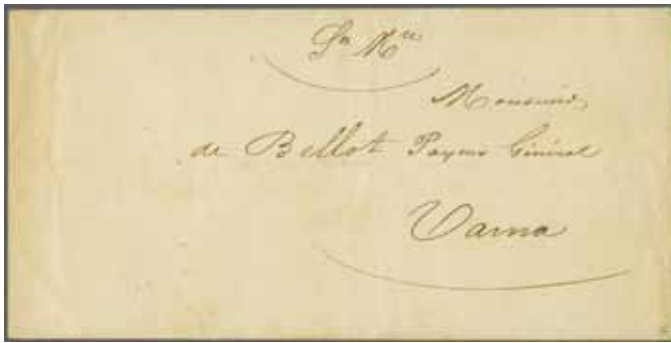 Sce Mre
Monsieur
de Bellot Payeur Général
Varna